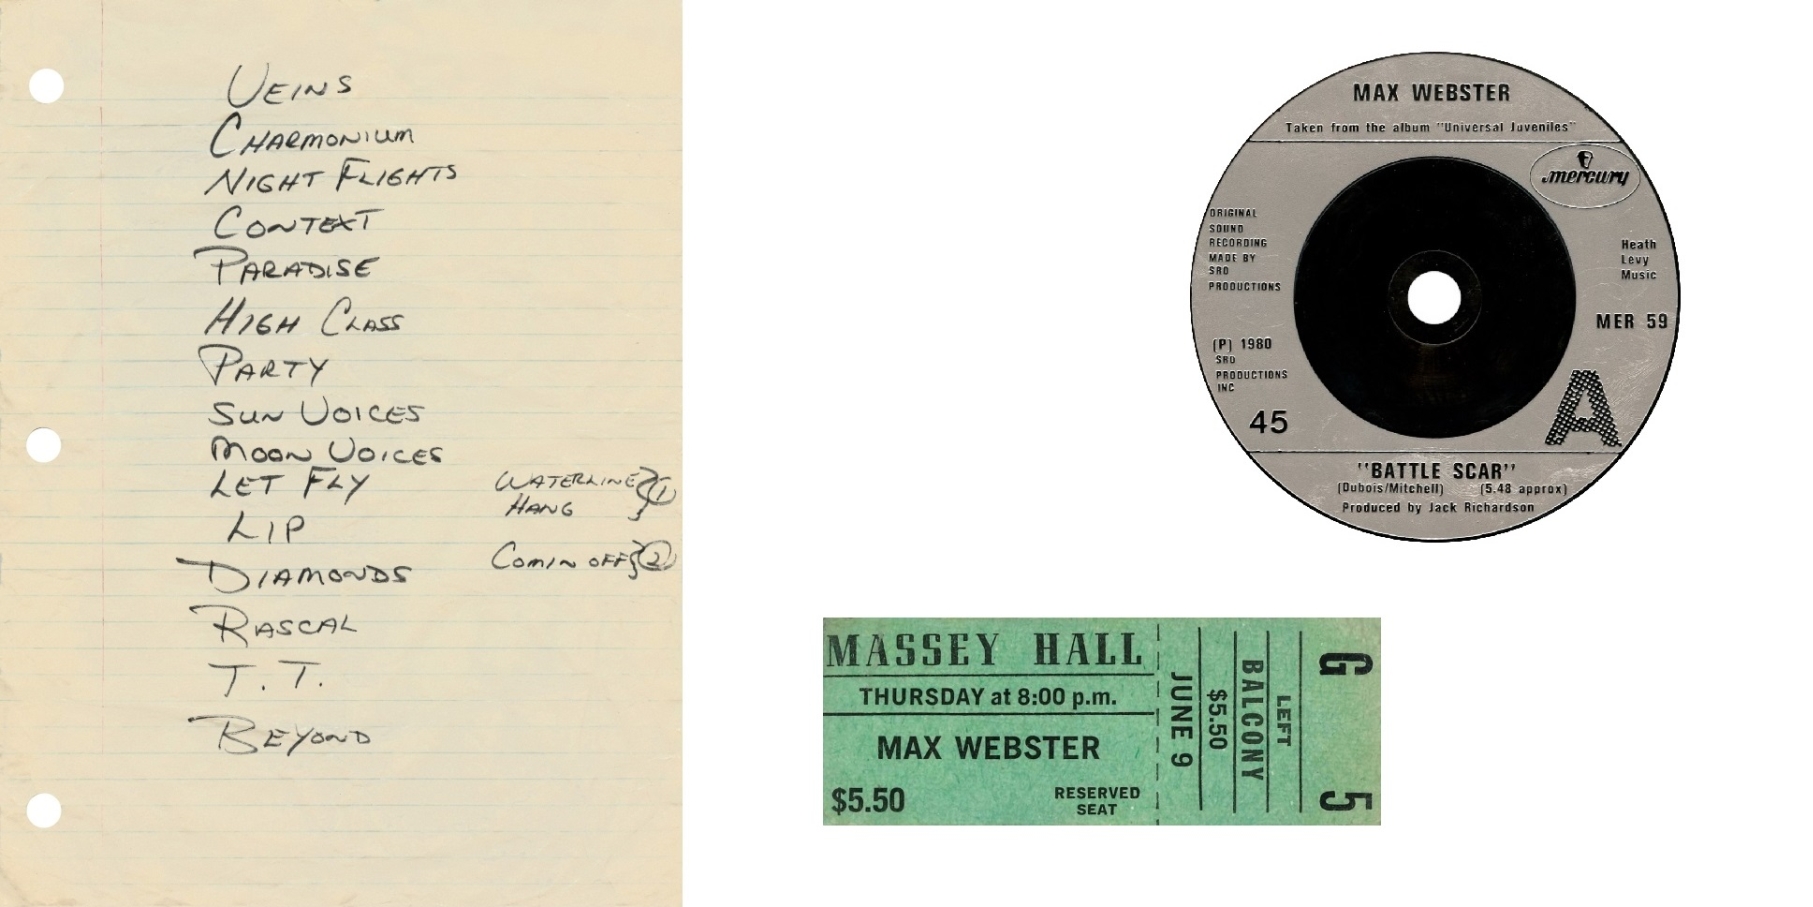 VEINS
CHARMONIUM
NIGHT FLIGHTS
CONTEXT
PARADISE
HIGH CLASS
PARTY
SUN VOICES
MOON VOICES
LET FLY
LIP
DIAMONDS
RASCAL
T. T.
BEYOND
WATERLINE } 1
HANG
COMIN OFF } 2
MAX WEBSTER
Taken from the album "Universal Juveniles"
mercury
ORIGINAL
SOUND
RECORDING
MADE BY
SRO
PRODUCTIONS
Heath
Levy
Music
MER 59
(P) 1980
SRO
PRODUCTIONS
INC
45
A
"BATTLE SCAR"
(Dubois/Mitchell) (5.48 approx)
Produced by Jack Richardson
MASSEY HALL
THURSDAY at 8:00 p.m.
MAX WEBSTER
$5.50
RESERVED
SEAT
JUNE 9
$5.50
BALCONY
LEFT
G 5